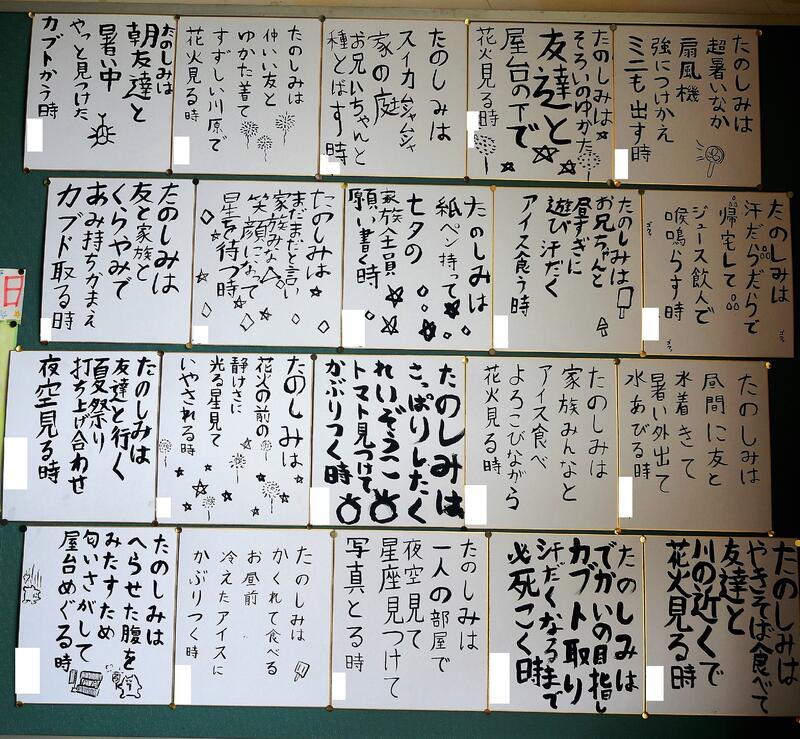 たのしみは
超暑いなか
扇風機
強につけかえ
ミニも出す時
たのしみは
そろいのゆかた
友達と
屋台の下で
花火見る時
たのしみは
スイカムシャムシャ
家の庭
お兄いちゃんと
種とばす時
たのしみは
仲いい友と
ゆかた着て
すずしい川原で
花火見る時
たのしみは
朝友達と
暑い中
やっと見つけた
カブトかう時
たのしみは
汗だらだらで
帰宅して
ジュース飲んで
喉鳴らす時
たのしみは
お兄ちゃんと
昼すぎに
遊び汗だく
アイス食う時
たのしみは
紙ペン持って
七夕の
家族全員
願い書く時
たのしみは
まだまだと言い
家族みな
笑顔になって
星を待つ時
たのしみは
友と家族と
くらやみで
あみ持ちかまえ
カブト取る時
たのしみは
昼間に友と
水着きて
暑い外出て
水あびる時
たのしみは
家族みんなと
アイス食べ
よろこびながら
花火見る時
たのしみは
さっぱりしたく
れいぞうこ
トマト見つけて
かぶりつく時
たのしみは
花火の前の
静けさに
光る星見て
いやされる時
たのしみは
友達と行く
夏祭り
打ち上げ合わせ
夜空見る時
たのしみは
やきそば食べて
友達と
川の近くで
花火見る時
たのしみは
でかいの目指し
カブト取り
汗だくなるまで
必死こく時
たのしみは
一人の部屋で
夜空見て
星座見つけて
写真とる時
たのしみは
かくれて食べる
お昼前
冷えたアイスに
かぶりつく時
たのしみは
へらせた腹を
みたすため
匂いさがして
屋台めぐる時
日